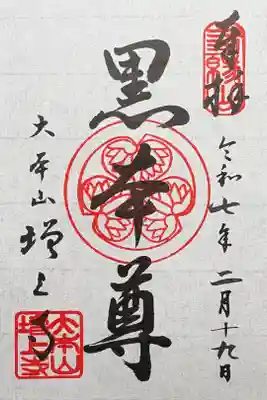 奉拝
令和七年二月十九日
黒本尊
大本山増上寺
大本山
増上寺